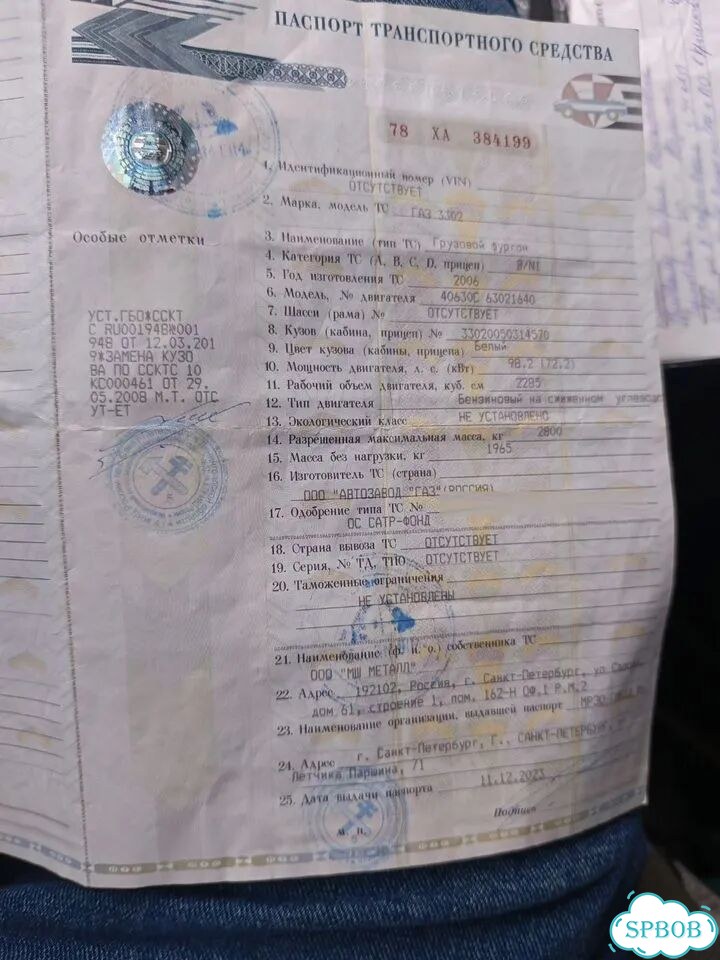 ПАСПОРТ ТРАНСПОРТНОГО СРЕДСТВА
78 ХА 384199
1. Идентификационный номер (VIN)
ОТСУТСТВУЕТ
2. Марка, модель ТС ГАЗ 3302
3. Наименование (тип ТС) Грузовой фургон
4. Категория ТС (А, В, С, D, прицеп) B/N1
5. Год изготовления ТС 2006
6. Модель, № двигателя 40630C 63021640
7. Шасси (рама) № ОТСУТСТВУЕТ
8. Кузов (кабина, прицеп) № 33020050314570
9. Цвет кузова (кабины, прицепа) Белый
10. Мощность двигателя, л. с. (кВт) 98.2 (72.2)
11. Рабочий объем двигателя, куб. см 2285
12. Тип двигателя Бензиновый на сжиженном углеводо
13. Экологический класс НЕ УСТАНОВЛЕНО
14. Разрешенная максимальная масса, кг 2800
15. Масса без нагрузки, кг 1965
16. Изготовитель ТС (страна)
ООО "АВТОЗАВОД "ГАЗ"(РОССИЯ)
17. Одобрение типа ТС №
ОС САТР-ФОНД
18. Страна вывоза ТС ОТСУТСТВУЕТ
19. Серия, № ТД, ТПО ОТСУТСТВУЕТ
20. Таможенные ограничения
НЕ УСТАНОВЛЕНЫ
21. Наименование (ф. и. о.) собственника ТС
ООО "МШ МЕТАЛЛ"
22. Адрес 192102, Россия, г. Санкт-Петербург, ул
дом 61, строение 1, пом. 162-Н ОФ.1 Р.М.2
23. Наименование организации, выдавшей паспорт МРЭО
24. Адрес г. Санкт-Петербург, Г., САНКТ-ПЕТЕРБУРГ,
Летчика Паршина, 71
25. Дата выдачи паспорта 11.12.2023
М. П.
Подпись
Особые отметки
УСТ.ГБО*ССКТ
С RU001948№001
948 ОТ 12.03.201
9*ЗАМЕНА КУЗО
ВА ПО ССКТС 10
КС000461 ОТ 29.
05.2008 М.Т. ОТС
УТ-ЕТ
SPBOB